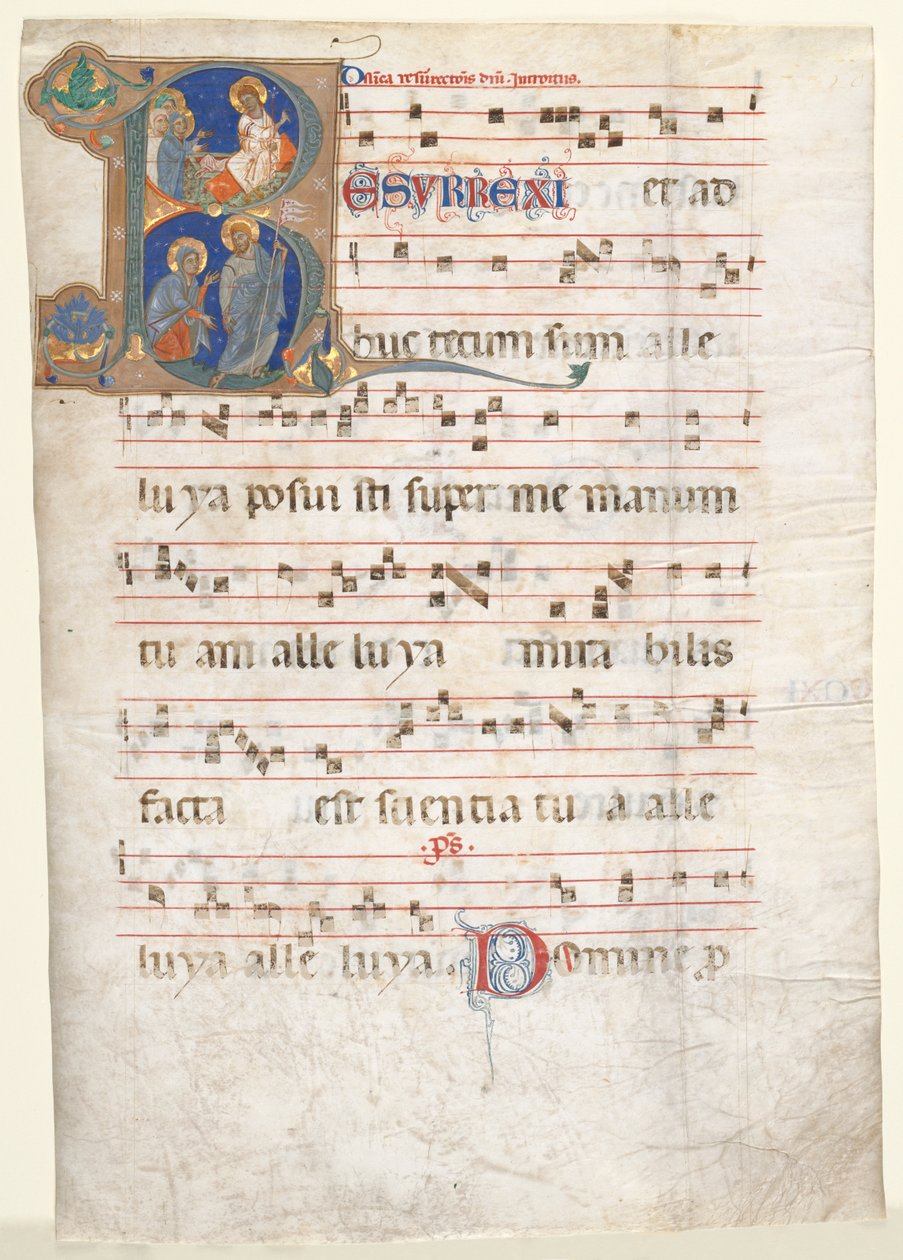 Dñica resurrectoĩs dñi. Introitus.
RESVRREXI et ad
huc tecum sum alle
lu ya posui sti super me manum
tu am alle lu ya mira bilis
facta est scientia tu a alle
.ps.
luya alle luya. Domine p